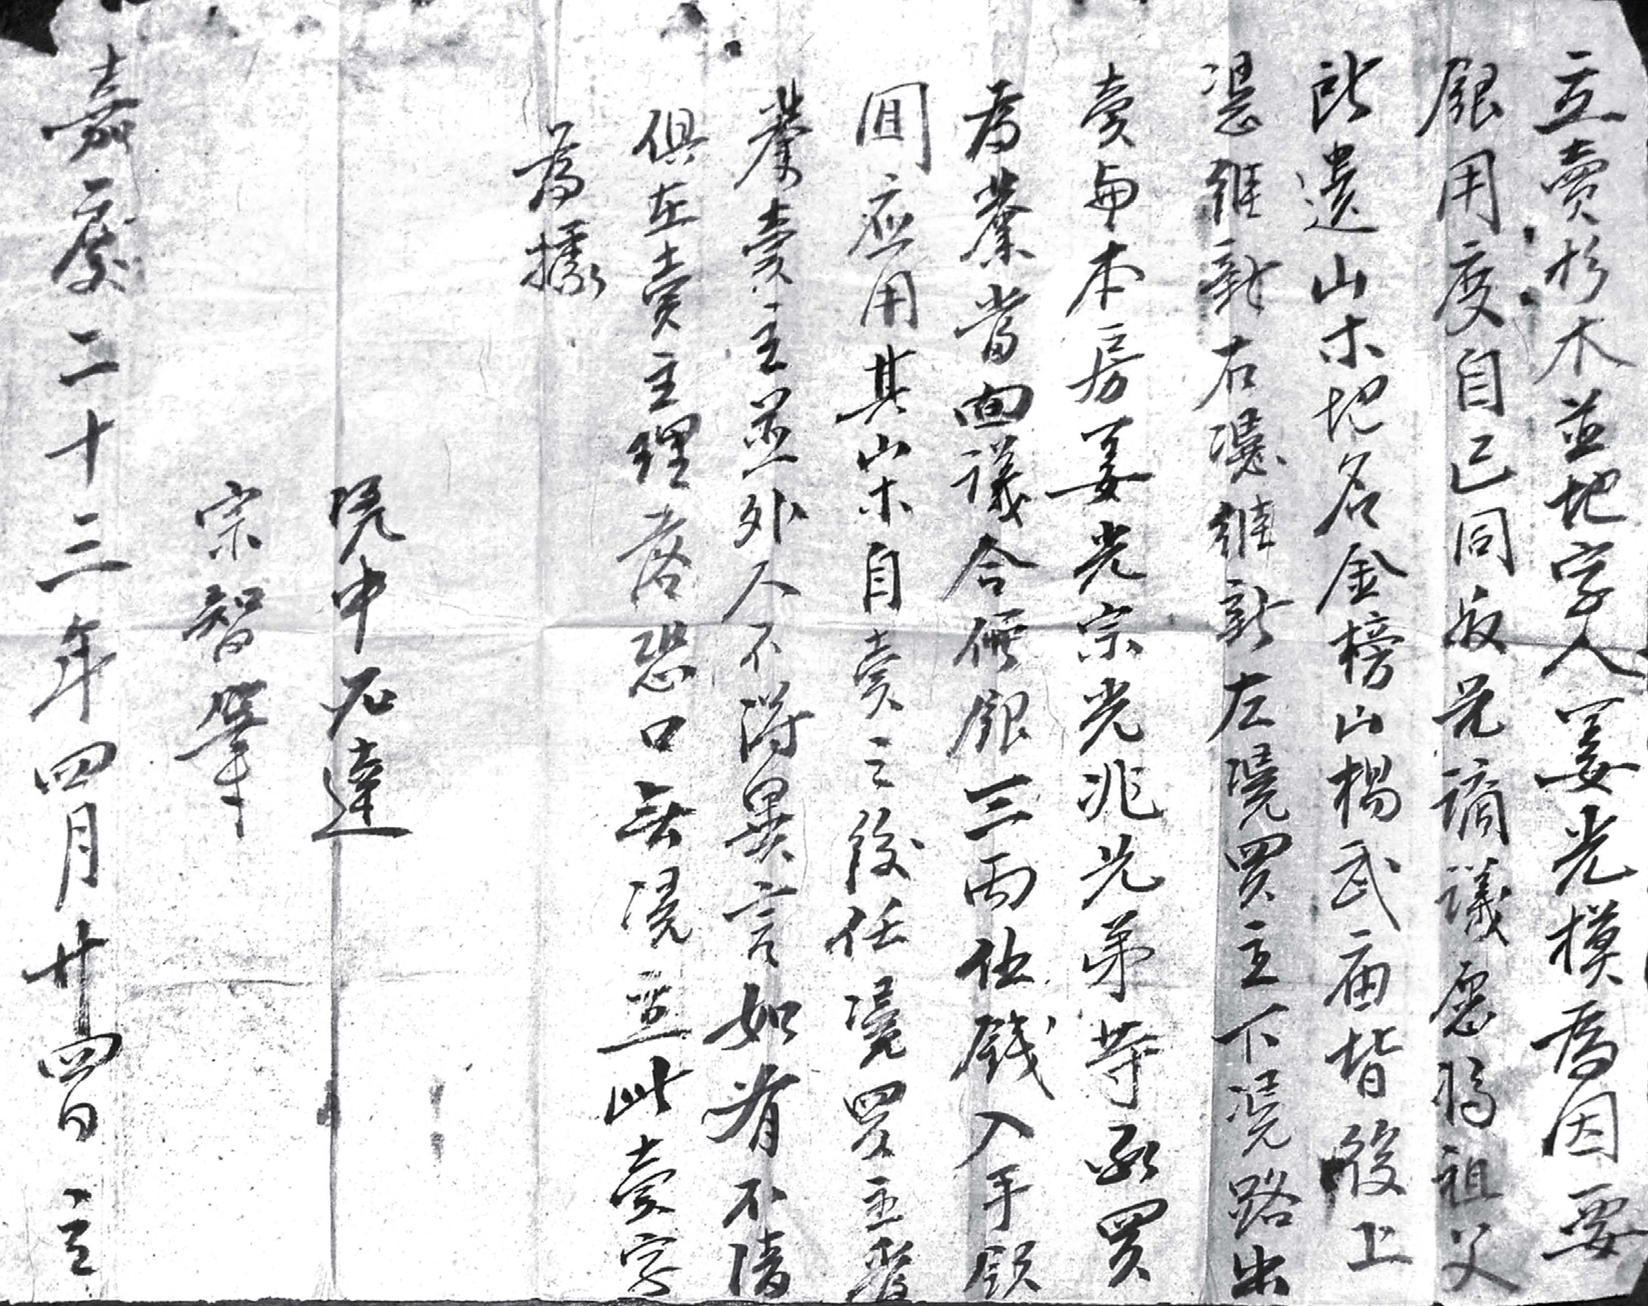 立賣杉木並地字人姜光模為因要
銀用度自己同叔兄謫議愿將祖父
所遺山木地名金榜山楊武廟背後上
凴維新右凴維新左凴買主下凴路出
賣與本房姜光宗光兆兄弟等承買
為業當面議合價銀三両伍錢入手領
回應用其山木自賣之後任凴買主管
業賣主並外人不得異言如有不清
俱在賣主理落恐口無凴立此賣字
為據
凴中石達
宗智筆
嘉慶二十三年四月廿四日立